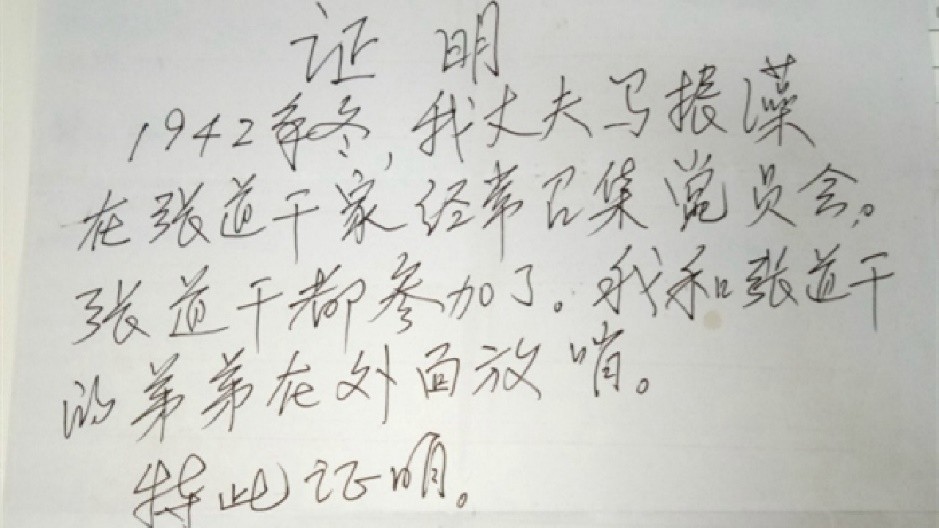 证明
1942年冬,我丈夫马振藻
在张道干家经常召集党员会。
张道干都参加了。我和张道干
的弟弟在外面放哨。
特此证明。